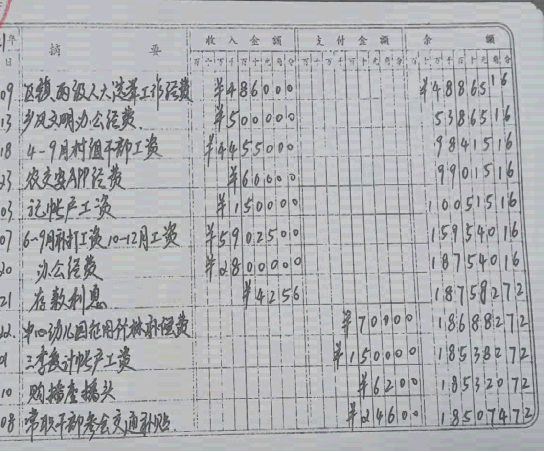 年 摘 要 收入金额 支付金额 余 额
日 百十万千百十元角分 百十万千百十元角分 百十万千百十元角分
09 区镇两级人大选举工作经费 ¥486000 ¥4886516
13 乡风文明办公经费 ¥500000 5386516
18 4-9月村组干部工资 ¥4455000 9841516
23 农交安APP经费 ¥60000 9901516
03 记帐户工资 ¥150000 10051516
07 6-9月补打工资10-12月工资 ¥5902500 15954016
20 办公经费 ¥2800000 18754016
21 存款利息 ¥4256 18758272
22 中心幼儿园征用竹林补偿费 ¥70000 18688272
01 三季度计帐户工资 ¥150000 18538272
10 购播音插头 ¥6200 18532072
08 常职干部参会交通补贴 ¥24600 18507472